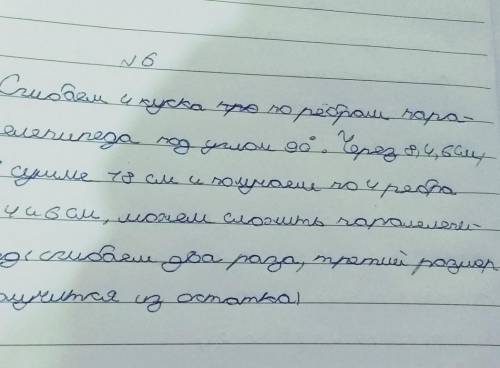 №6
Сгибаем 4 куска по рёбрам пара-
лелепипеда под углом 90°. Через 8,4,6 см,
сумме 18 см и получаем по 4 ребра
4 и 6 см, можем сложить паралелепи-
ед (сгибаем два раза, третий размер
олучится из остатка)